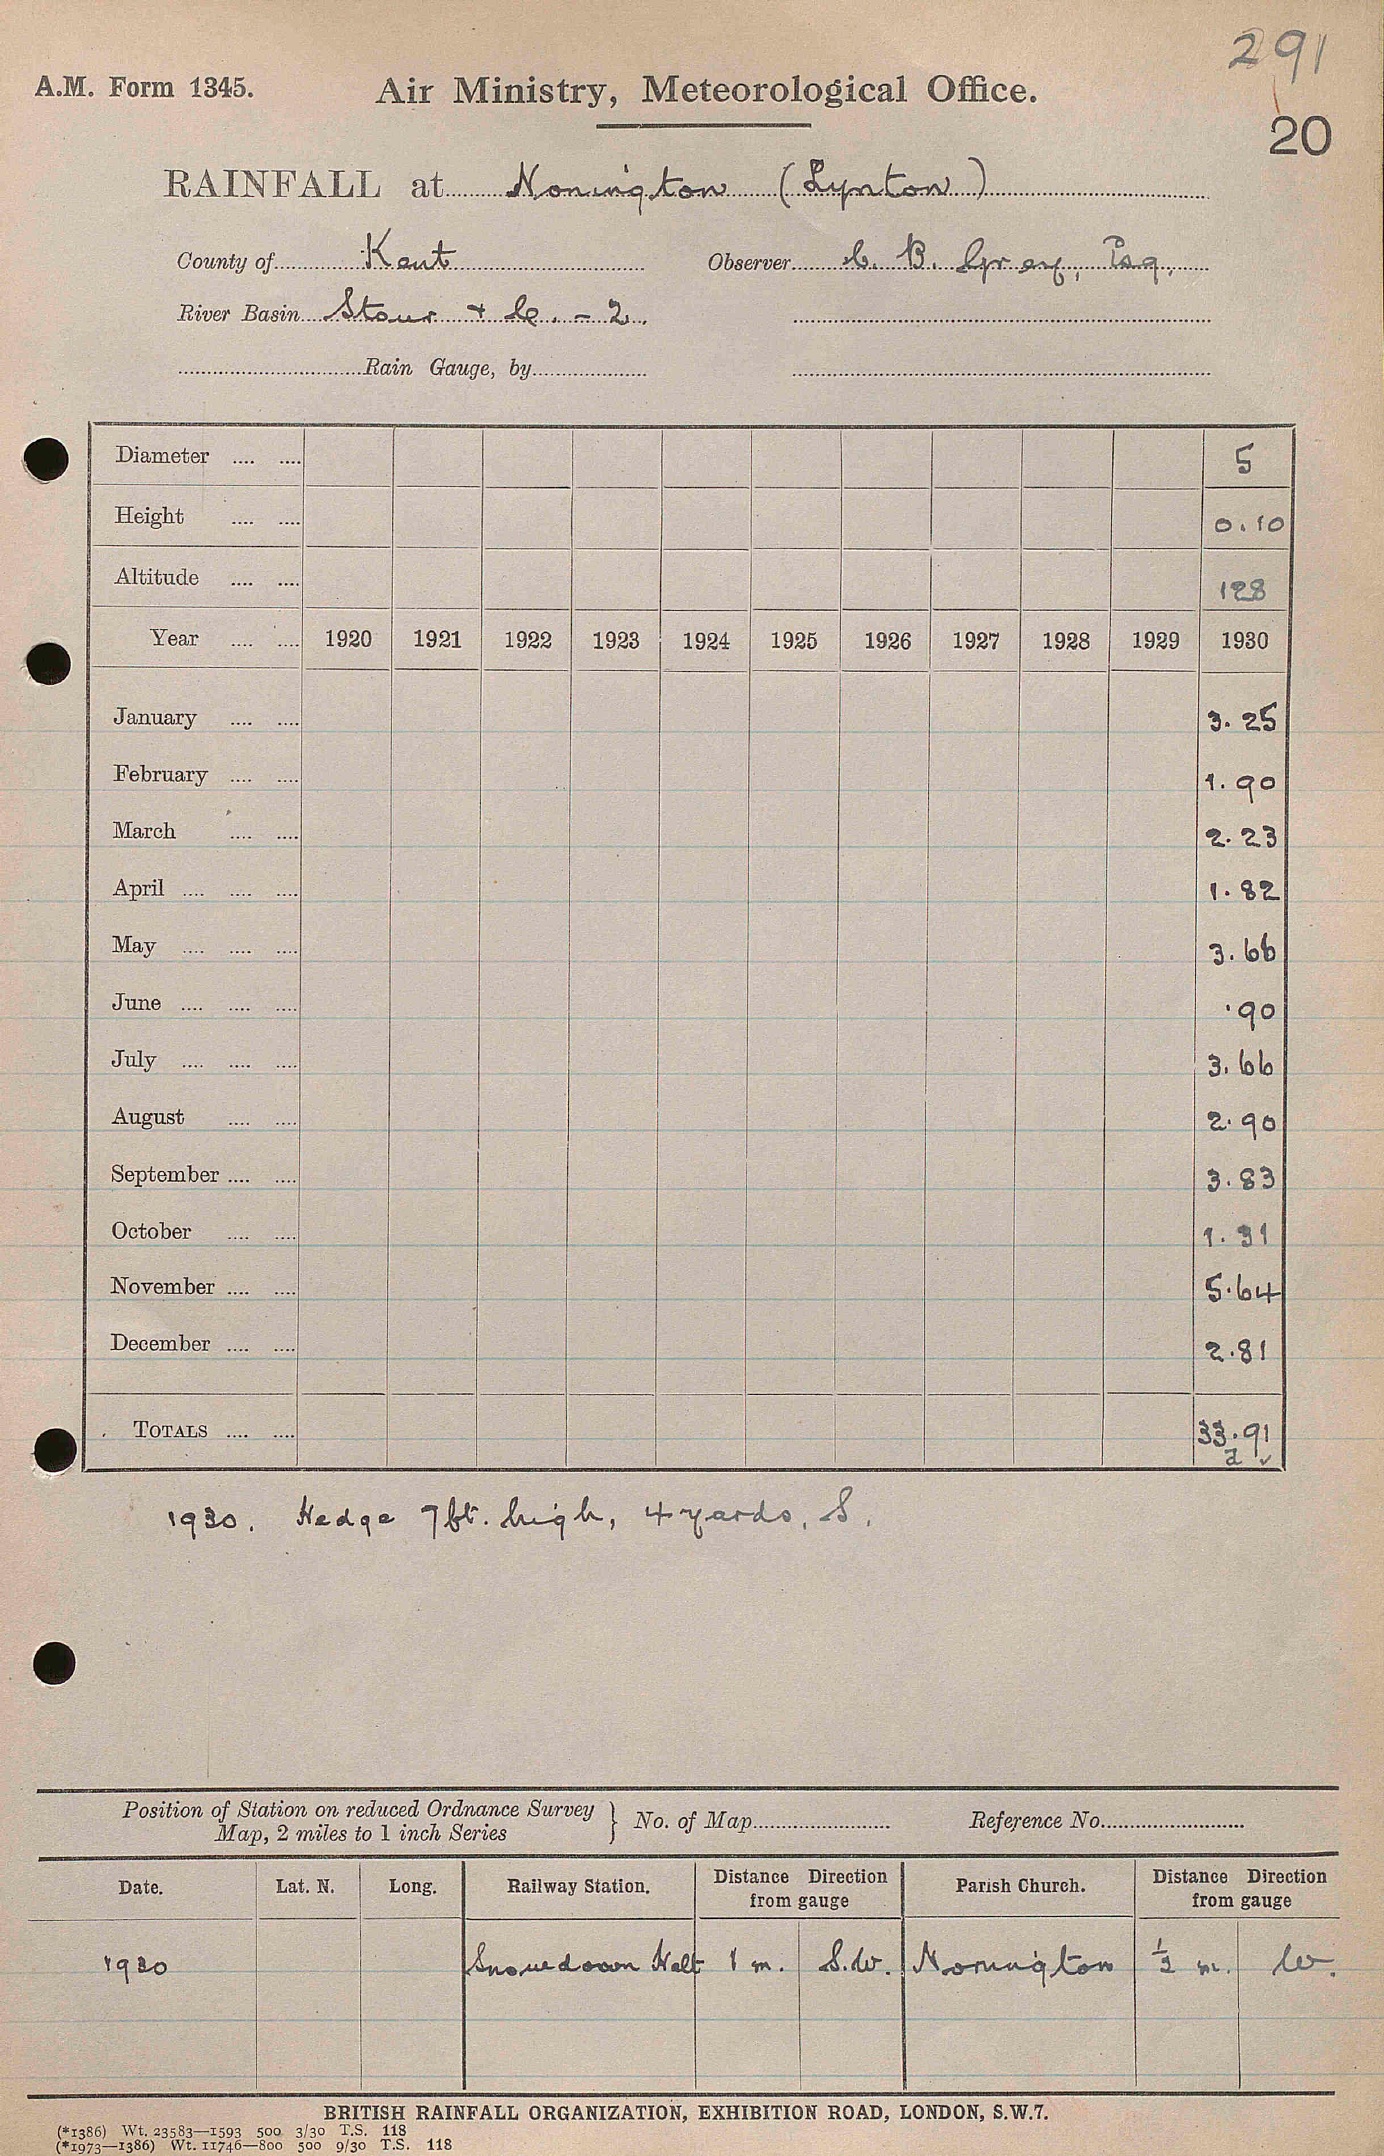 291
A.M. Form 1345. Air Ministry, Meteorological Office.
20
RAINFALL at Nonington (Lynton)
County of Kent Observer C. B. Grey, Esq.
River Basin Stour & C. - 2.
Rain Gauge, by
Diameter .... .... 5
Height .... .... 0.10
Altitude .... .... 128
Year .... .... 1920 1921 1922 1923 1924 1925 1926 1927 1928 1929 1930
January .... .... 3.25
February .... .... 1.90
March .... .... 2.23
April .... .... .... 1.82
May .... .... .... 3.66
June .... .... .... .90
July .... .... .... 3.66
August .... .... 2.90
September .... .... 3.83
October .... .... 1.31
November .... .... 5.64
December .... .... 2.81
TOTALS .... .... 33.91
a ✓
1930. Hedge 7ft. high, 4 yards, S.
Position of Station on reduced Ordnance Survey
Map, 2 miles to 1 inch Series } No. of Map Reference No.
Date. Lat. N. Long. Railway Station. Distance Direction from gauge Parish Church. Distance Direction from gauge
1930 Snowdown Halt 1 m. S.W. Nonington ½ m. W.
BRITISH RAINFALL ORGANIZATION, EXHIBITION ROAD, LONDON, S.W.7.
(*1386) Wt. 23583—1593 500 3/30 T.S. 118
(*1973—1386) Wt. 11746—800 500 9/30 T.S. 118